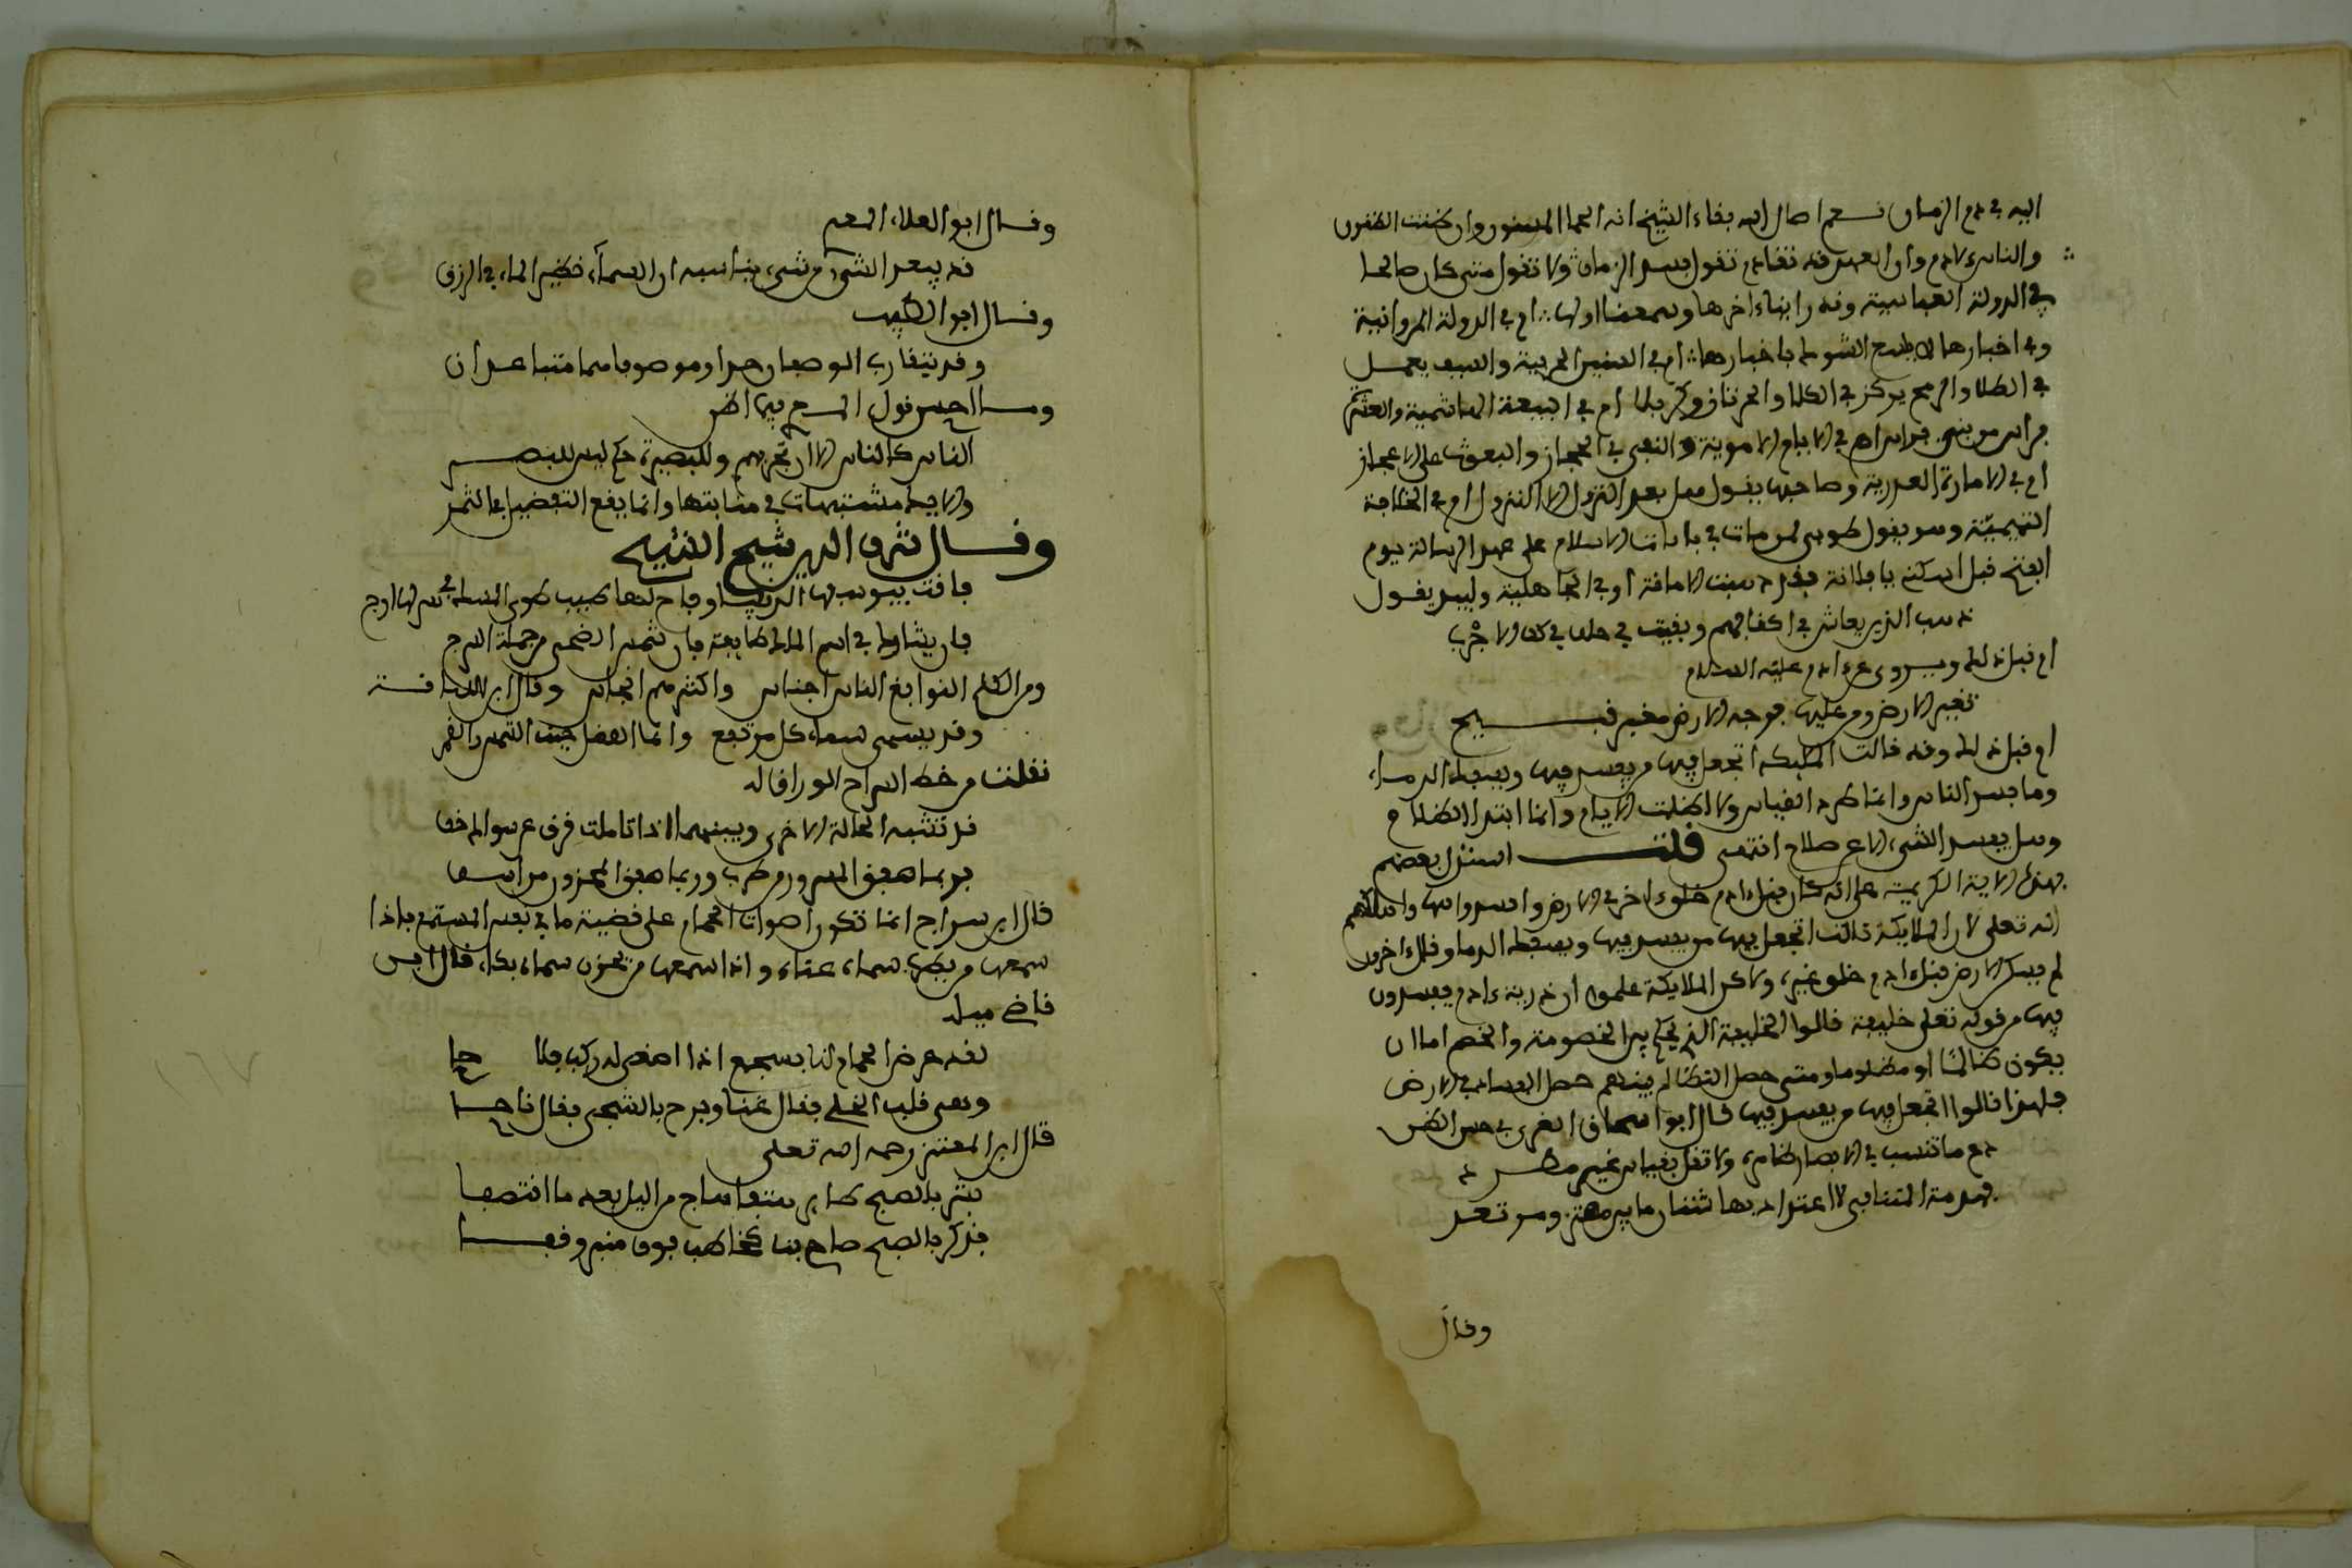 اليه في ذم الزمان نعم اطال الله بقاء الشيخ انه الحما المسنون وان ظنت الظنون
والناس لادم وان العهد قد تقادم تقول فسد الزمان ولا تقول متى كان صالحا
في الدولة العباسية وقد راينا ءاخرها وسمعنا اولها ام في الدولة المروانية
وفي اخبارها لا تكسع الشول باغبارها ام في السنين الحربية والسيف يعمل
في الطلا والرمح يركز في الكلا والحرتان وكربلا ام في البيعة الهاشمية والعشرة
براس من بني فراس ام في الايام الاموية والنفير في الحجاز والعيون على الاعجاز
ام في الامارة العدوية وصاحبها يقول هل بعد النزول الا النزول ام في الخلافة
التيمية وهو يقول طوبى لمن مات في نانات الاسلام ام على عهد الرسالة يوم
الفتح قيل اسكتي يا فلانة فقد ذهبت الامانة او في الجاهلية ولبيد يقول
ذهب الذين يعاش في اكنافهم وبقيت في خلف كجلد الاجرب
ام قبل ذلك ويروى عن ءادم عليه السلام
تغيرت الارض ومن عليها فوجه الارض مغبر قبيح
ام قبل ذلك وقد قالت الملائكة اتجعل فيها من يفسد فيها ويسفك الدماء
وما فسد الناس وانما اطرد القياس ولا اظلمت الايام وانما امتد الاظلام
وهل يفسد الشيء الا عن صلاح انتهى قلت استدل بعضهم
بهذه الاية الكريمة على انه كان قبل ءادم خلق ءاخر في الارض وافسدوا فيها واهلكهم
الله تعلى لان الملايكة قالت اتجعل فيها من يفسد فيها ويسفك الدما وقال ءاخرون
لم يسكن الارض قبل ءادم خلق غيره ولاكن الملايكة علموا ان ذرية ءادم يفسدون
فيها من قوله تعلى خليفة قالوا الخليفة الذي يحكم بين الخصومة والخصم اما ان
يكون ظالما او مظلوما ومتى حصل التظالم بينهم حصل الفساد في الارض
فلهذا قالوا اتجعل فيها من يفسد فيها قال ابو اسحاق الغزي في حسن النظر
دع ما تنسب في الابصار ظاهره ولا تقل بقياس غير مطرد
فهزمة المتنافي لا اعتداد بها شتان ما بين مهتز ومرتعد
وقال
وقال ابو العلاء المعري
قد يبعد الشيء من شيء يناسبه ان السماء نظير الماء في الزرق
وقال ابو الطيب
وقد يتقارب الوصفان جدا وموصوفاهما متباعدان
وما احسن قول المسلم فيما اظن
الناس كالناس الا ان تجربهم وللبصيرة حكم ليس للبصر
والايك مشتبهات في منابتها وانما يقع التفضيل في الثمر
وقال شرف الدين شيخ الشيوخ
فاقت بيوسفها الدنيا وفاح لها طيب طوى المسك في نشر لها ارج
فان يشارك في اسم الملك طايفة فان شمس الضحى من جملة السرج
ومن الكلم النوابغ الناس اجناس واكثرهم انجاس وقال ابن اللبانة
وقد يسمى سماء كل مرتفع وانما الفضل حيث الشمس والقمر
نقلت من خط السراج الوراق له
قد تشبه الحالة الاخرى وبينهما اذا تاملت فرق عن سواك خفا
فربما صفق المسرور من طرب وربما صفق المحزون من اسفا
قال ابن سراج انما تكون اصوات الحمام على قضية ما في نفس المستمع فاذا
سمعها من يطرب سماه غناء واذا سمعها من يحزن سماه بكا، قال ابن
قاضي ميلة
لقد عرض الحمام لنا بسجع اذا اصغى له ركب تلاحا
وبعى قلب الخلي فقال غنا وبرح بالشجي فقال ناحا
قال ابن المعتز رحمه الله تعلى
بشر بالصبح طاير هتفا هاج من اليل بعد ما انتصفا
فذكر بالصبح صاح بنا كخاطب فوق منبر وقفا